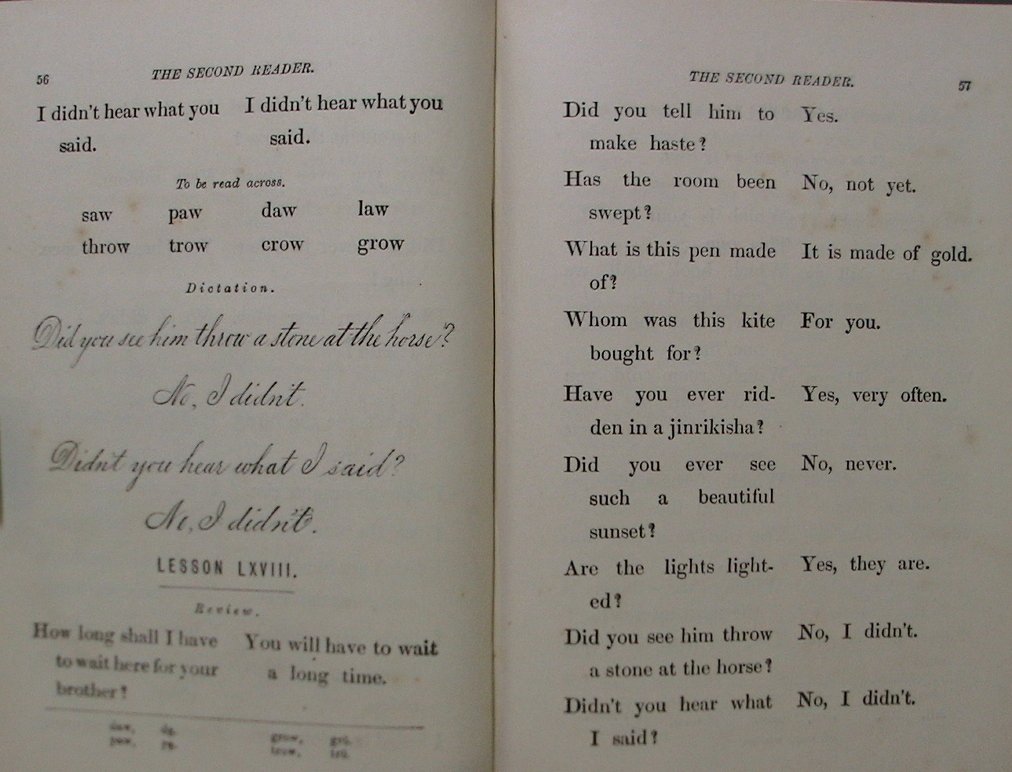 56
THE SECOND READER.
I didn't hear what you I didn't hear what you
said. said.
To be read across.
saw paw daw law
throw trow crow grow
Dictation.
Did you see him throw a stone at the horse?
No, I didn't.
Didn't you hear what I said?
No, I didn't.
LESSON LXVIII.
Review.
How long shall I have You will have to wait
to wait here for your a long time.
brother?
daw, grow,
paw, trow,
THE SECOND READER.
57
Did you tell him to Yes.
make haste?
Has the room been No, not yet.
swept?
What is this pen made It is made of gold.
of?
Whom was this kite For you.
bought for?
Have you ever rid- Yes, very often.
den in a jinrikisha?
Did you ever see No, never.
such a beautiful
sunset?
Are the lights light- Yes, they are.
ed?
Did you see him throw No, I didn't.
a stone at the horse?
Didn't you hear what No, I didn't.
I said?